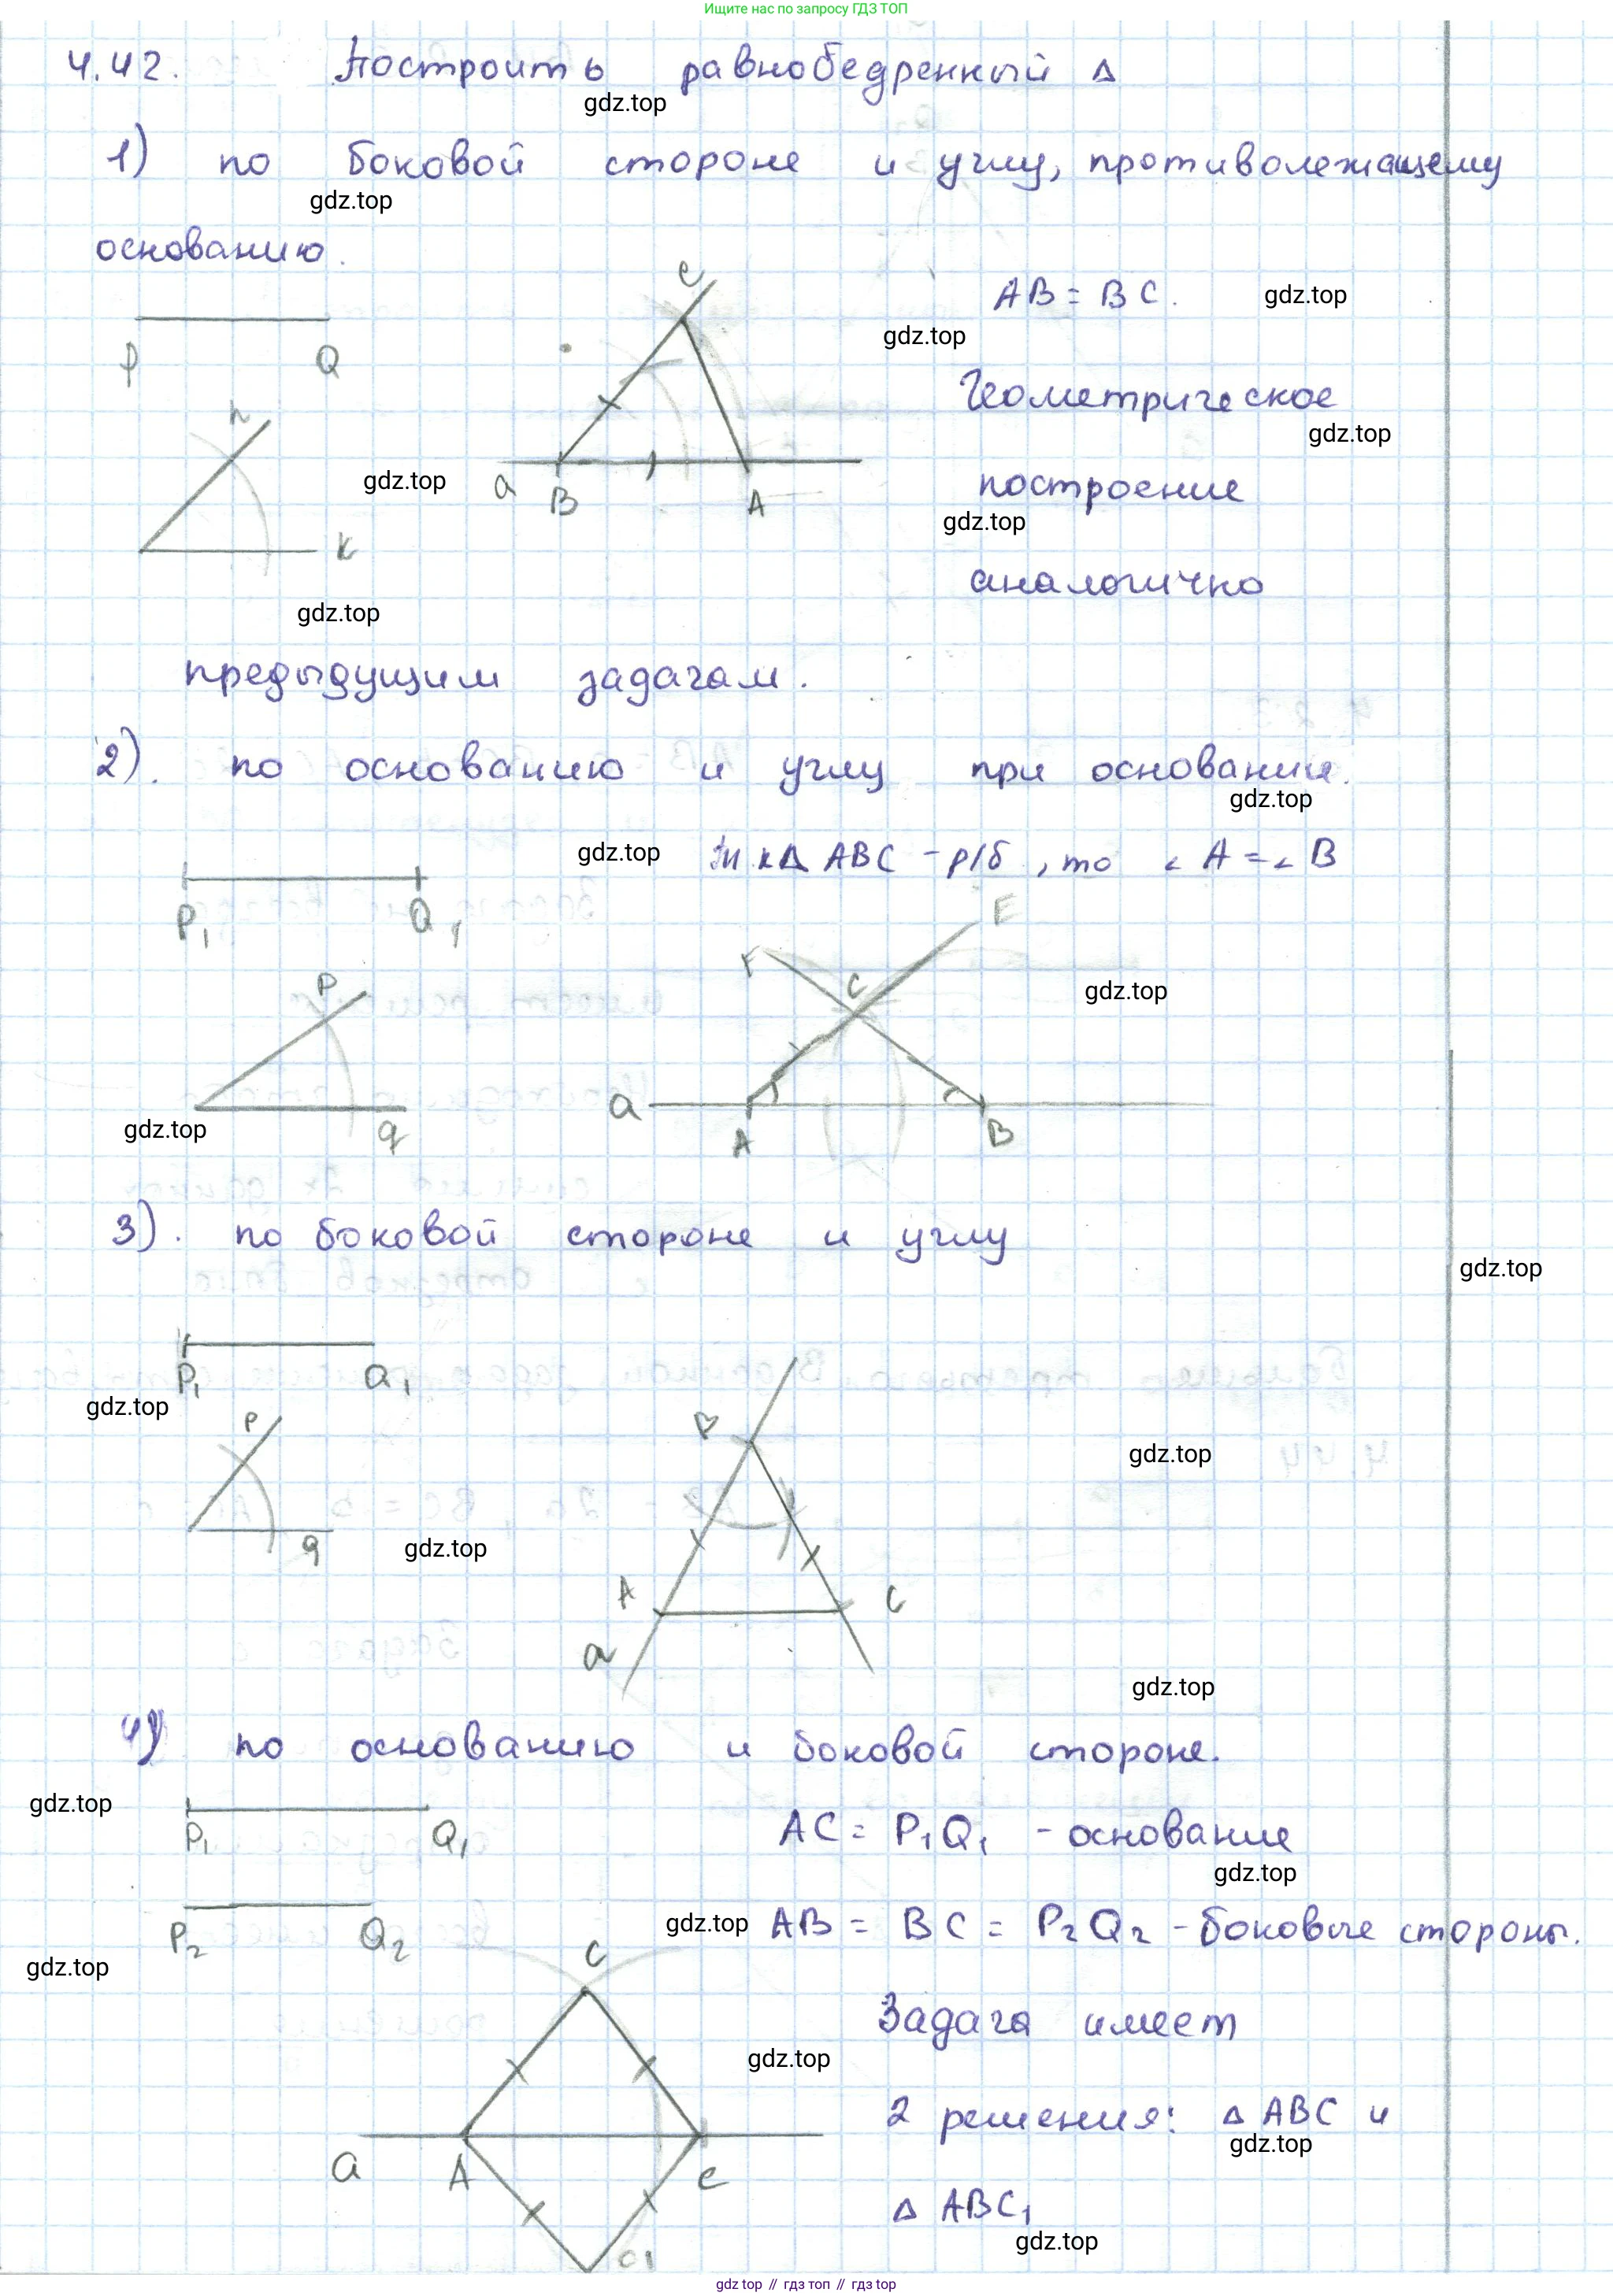 Ищите нас по запросу ГДЗ ТОП
4.42. Построить равнобедренный Δ
gdz.top
1) по боковой стороне и углу, противолежащему
gdz.top
основанию.
C
AB = BC.
gdz.top
gdz.top
P Q
Геометрическое
h
gdz.top
gdz.top
a B A
построение
gdz.top
k
аналогично
gdz.top
предыдущим задачам.
2). по основанию и углу при основании.
gdz.top
gdz.top
т.к Δ ABC - р/б, то ∠A = ∠B
P₁ Q₁
E
F C
P
gdz.top
a
A B
gdz.top
q
3). по боковой стороне и углу
gdz.top
P₁ Q₁
gdz.top
P
B
gdz.top
q
gdz.top
A C
a
gdz.top
4) по основанию и боковой стороне.
gdz.top
P₁ Q₁
AC = P₁Q₁ - основание
gdz.top
P₂ Q₂
gdz.top
AB = BC = P₂Q₂ - боковые стороны.
gdz.top
C
Задача имеет
gdz.top
2 решения: Δ ABC и
gdz.top
a A C
Δ ABC₁
gdz.top
C1
gdz.top // гдз топ // gdz top